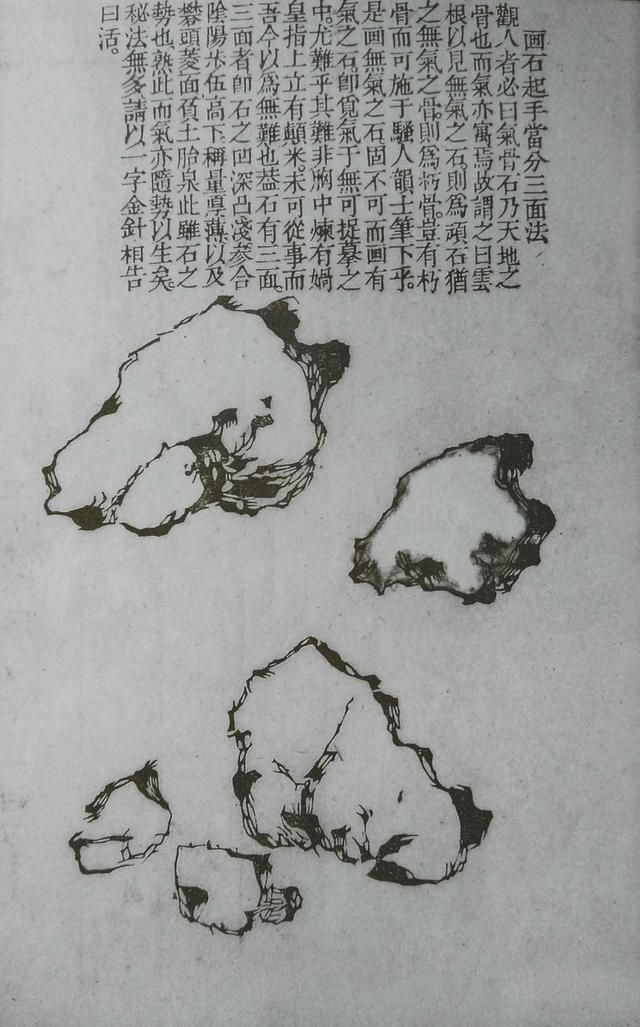 画石起手當分三面法
觀人者必曰氣骨石乃天地之
骨也而氣亦寓焉故謂之曰雲
根以見無氣之石則為頑石猶
之無氣之骨則為朽骨豈有朽
骨而可施于騷人韻士筆下乎。
是画無氣之石固不可而画有
氣之石即覓氣于無可捉摹之
中。尤難乎其難非胸中煉有媧
皇指上立有顛米。未可從事而
吾今以為無難也葢石有三面。
三面者即石之凹深凸淺參合
陰陽步伍高下稱量厚薄以及
礬頭菱面負土胎泉此雖石之
勢也熟此而氣亦隨勢以生矣。
秘法無多請以一字金針相告
曰活。